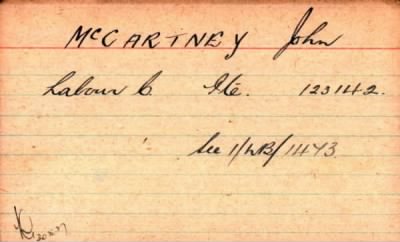 McCARTNEY John
Labour C Pte. 123142.
See 1/WB/1473.